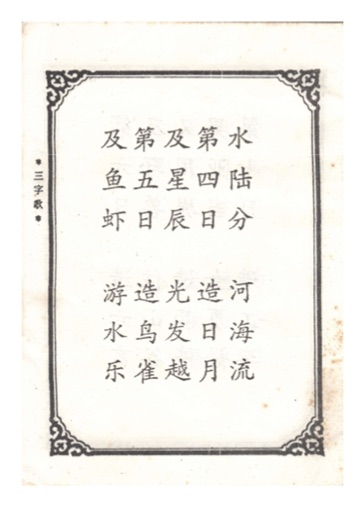 水陆分 河海流
第四日 造日月
及星辰 光发越
第五日 造鸟雀
及鱼虾 游水乐
*三字歌*